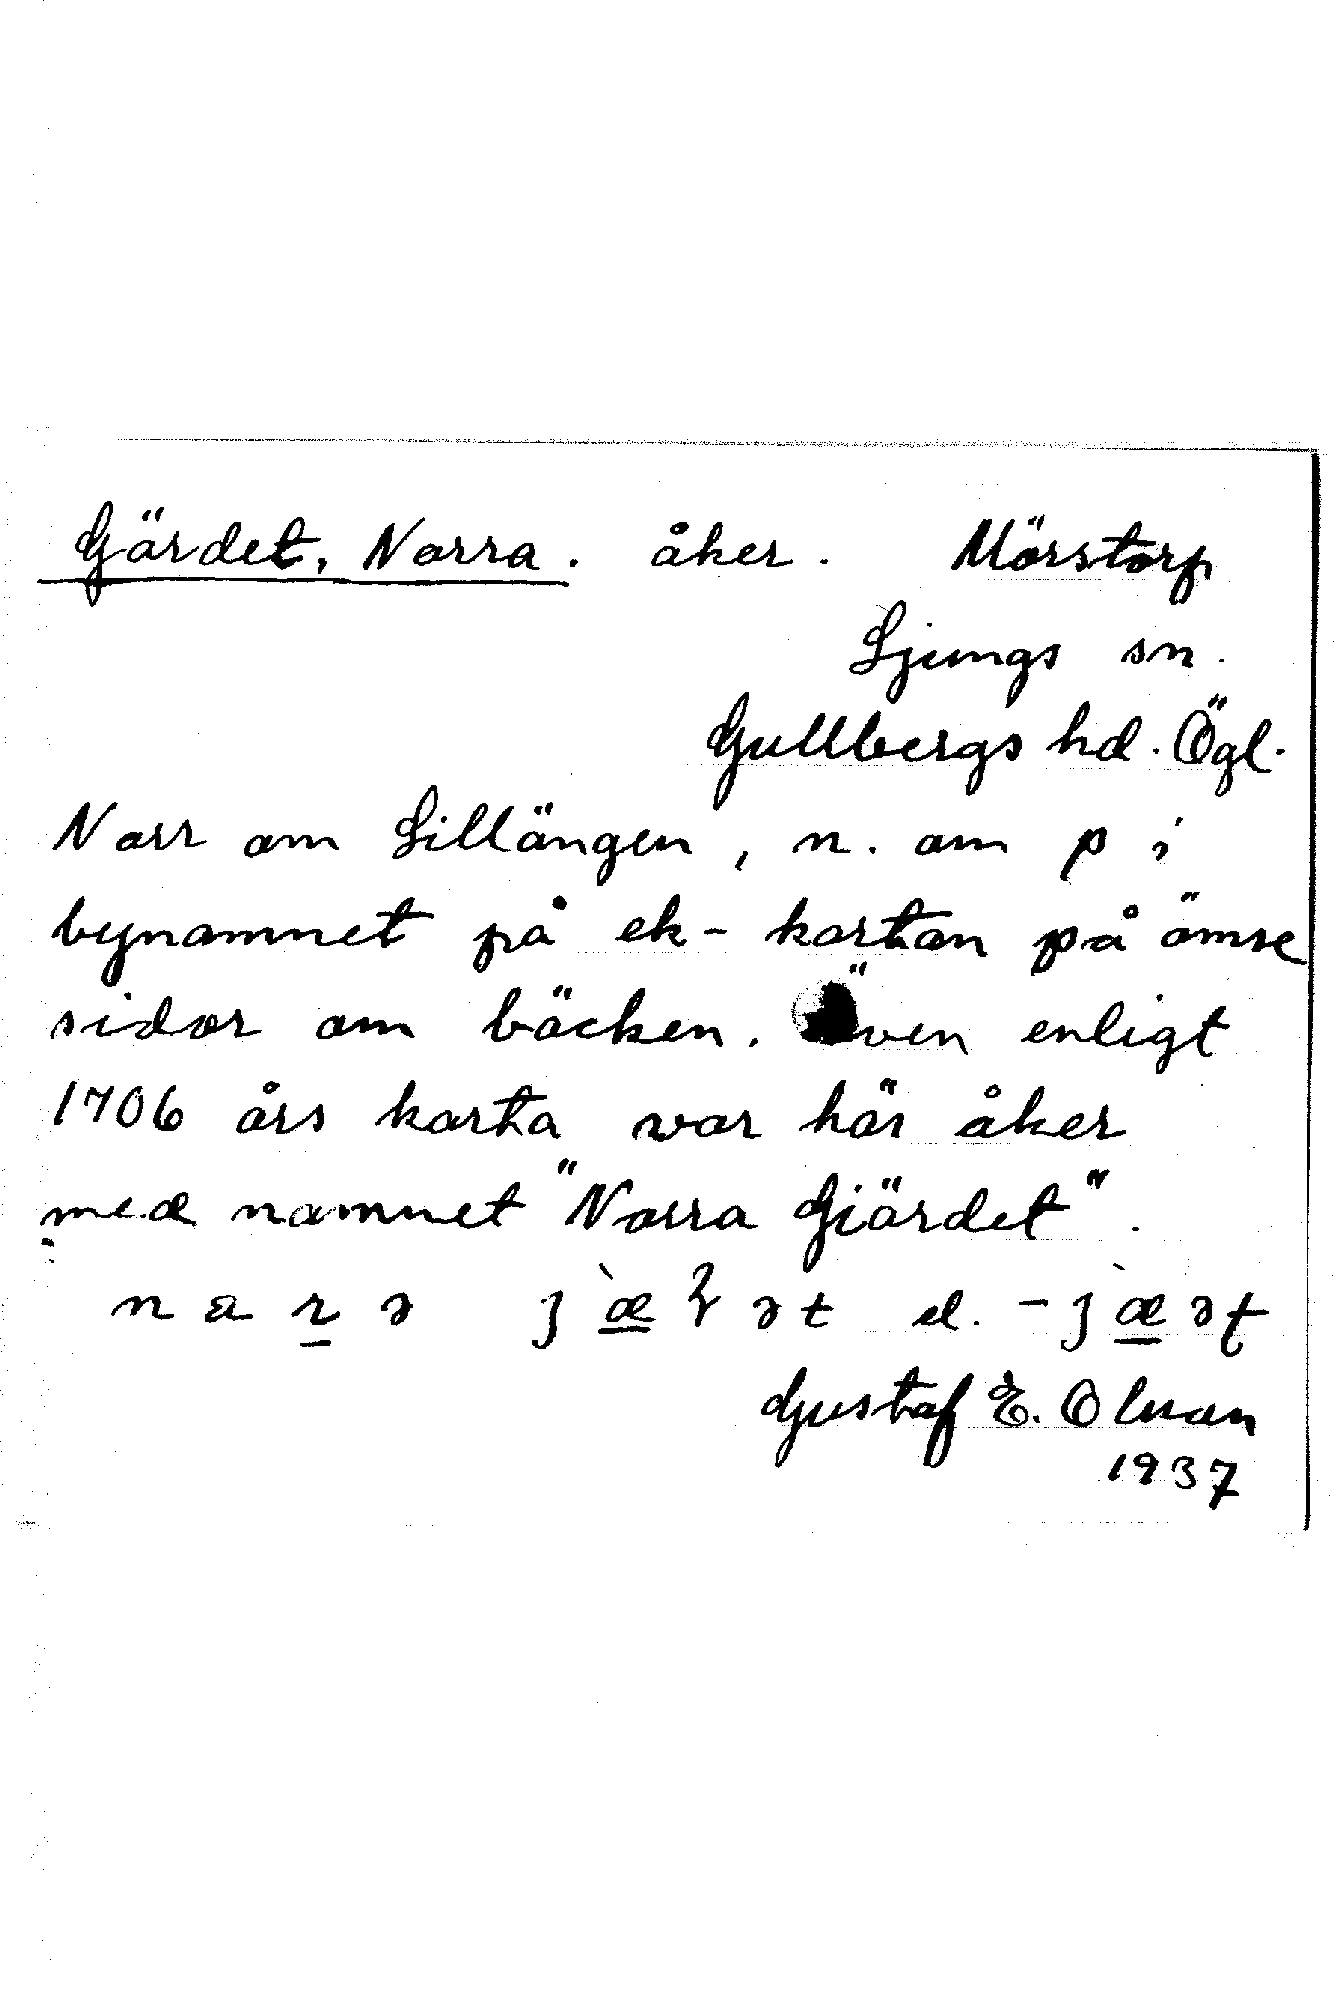 Gärdet, Norra. åker. Mörstorp
Ljungs sn.
Gullbergs hd. Ögl.
Norr om Lillängen, n. om p i
bynamnet på ek-kartan på ömse
sidor om bäcken. Även enligt
1706 års karta var här åker
med namnet "Norra Giärdet".
el.
Gustaf E. Olsson
1937